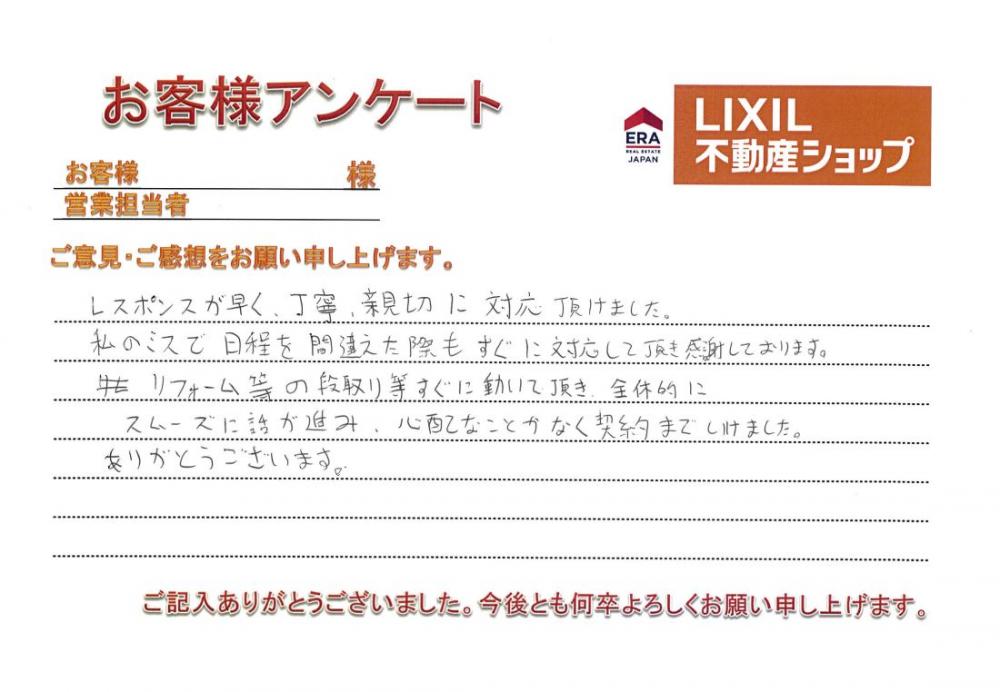 お客様アンケート
ERA
REAL ESTATE
JAPAN
LIXIL
不動産ショップ
お客様 様
営業担当者
ご意見・ご感想をお願い申し上げます。
レスポンスが早く、丁寧、親切に対応頂けました。
私のミスで日程を間違えた際もすぐに対応して頂き感謝しております。
リフォーム等の段取り等すぐに動いて頂き、全体的に
スムーズに話が進み、心配なことがなく契約までいけました。
ありがとうございます。
ご記入ありがとうございました。今後とも何卒よろしくお願い申し上げます。